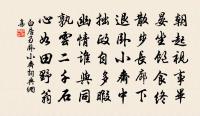 朝起視事畢
晏坐飽食終
散步長廊下
退臥小齋中
拙政自多暇
幽情誰與同
孰云二千石
心如田野翁
白居易臥小齋詞典網
集